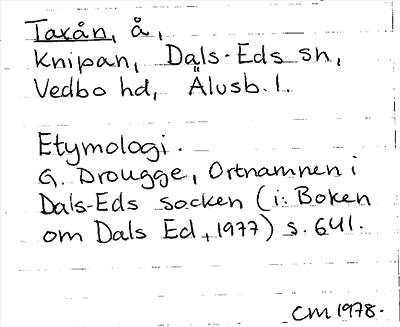 Taxån, å,
Knipan, Dals-Eds sn,
Vedbo hd, Älvsb. l.
Etymologi.
G. Drougge, Ortnamnen i
Dals-Eds socken (i: Boken
om Dals Ed, 1977) s. 641.
CM 1978.